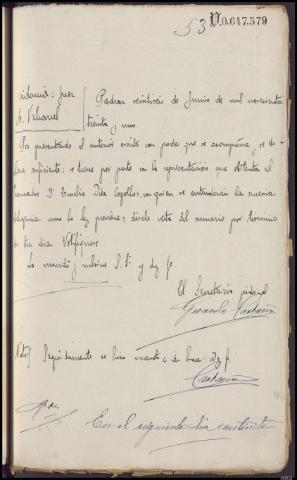 53 V.0.647.579
Providencia: Juez
Sr. Villarreal
Padron veintiseis de Junio de mil novecientos
treinta y uno.
Por presentado el anterior escrito con poder que se acompaña, se de-
clara suficiente: se tiene por parte en la representación que ostenta el
Procurador D. Emilio Diez, con quien se entenderán las nuevas
diligencias como la ley previene; désele vista del sumario por termino
de tres dias. Notifiquese.
Lo mandó y rubrica S. Sª y doy fe.
El Secretario judicial
Castaño
Nota/. Seguidamente se hizo doy fe.
Castaño
En el siguiente dia